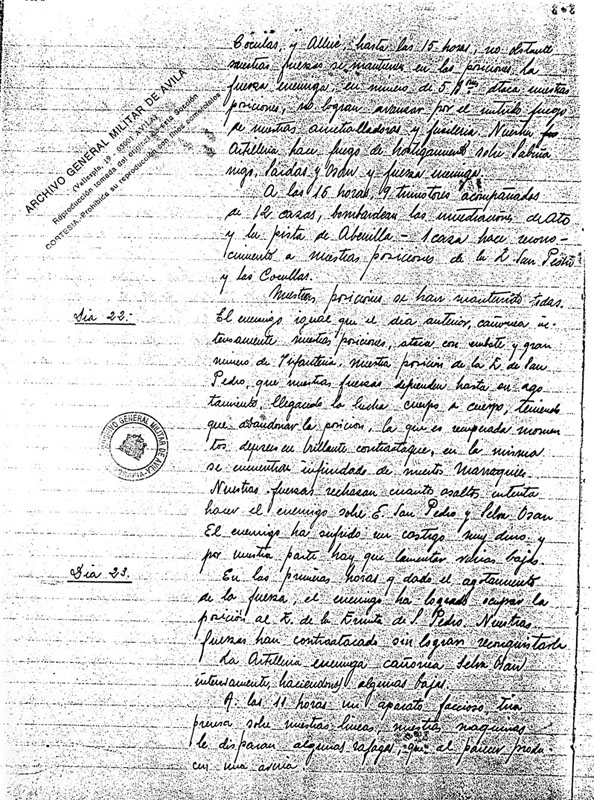 3-3
ARCHIVO GENERAL MILITAR DE AVILA
(Vallespin, 19 - 05001 AVILA)
Reproducción tomada del original de esta Sección
CORTESIA.-Prohibida su reproducción con fines comerciales
y hasta las 15 horas, no obstante
nuestras fuerzas se mantienen en las posiciones. La
fuerza enemiga, en numero de 5 ataca nuestras
posiciones, no logran avanzar por el fuego
de nuestras ametralladoras y fusileria. Nuestra
Artilleria hace fuego de hostigamiento sobre Sabiña
nigo, Sardas y Osan y fuerza enemiga.
A las 15 horas, 9 trimotores acompañados
de 12 cazas, bombardean las inmediaciones de Ato
y la pista de Abenilla - 1 caza hace recono-
cimiento a nuestras posiciones de la E. San Pedro
y las Cocullas.
Nuestras posiciones se han mantenido todas.
Dia 22.-
El enemigo igual que el dia anterior, cañonea in-
tensamente nuestras posiciones, ataca con embate y gran
numero de Infanteria, nuestra posicion de la E. de San
Pedro, que nuestras fuerzas defienden hasta su ago-
tamiento, llegando la lucha cuerpo a cuerpo, teniendo
que abandonar la posicion, la que es recuperada momen
tos despues en brillante contrataque, en la misma
se encuentran infinidad de muertos Marroquies.
Nuestras fuerzas rechazan cuanto asaltos intenta
hacer el enemigo sobre E. San Pedro y Selva Osan
El enemigo ha sufrido un castigo muy duro y
por nuestra parte hay que lamentar varias bajas.
Dia 23.
En las primeras horas y dado el agotamiento
de la fuerza, el enemigo ha logrado ocupar la
posición al E. de la Ermita de S. Pedro. Nuestras
fuerzas han contraatacado sin lograr reconquistarla
La Artilleria enemiga cañonea Selva Osan
intensamente, haciendonos algunas bajas.
A las 11 horas un aparato faccioso, tira
prensa sobre nuestras lineas, nuestras maquinas
le disparan algunas rafagas, que al parecer produ-
cen una averia.
ARCHIVO GENERAL MILITAR DE AVILA